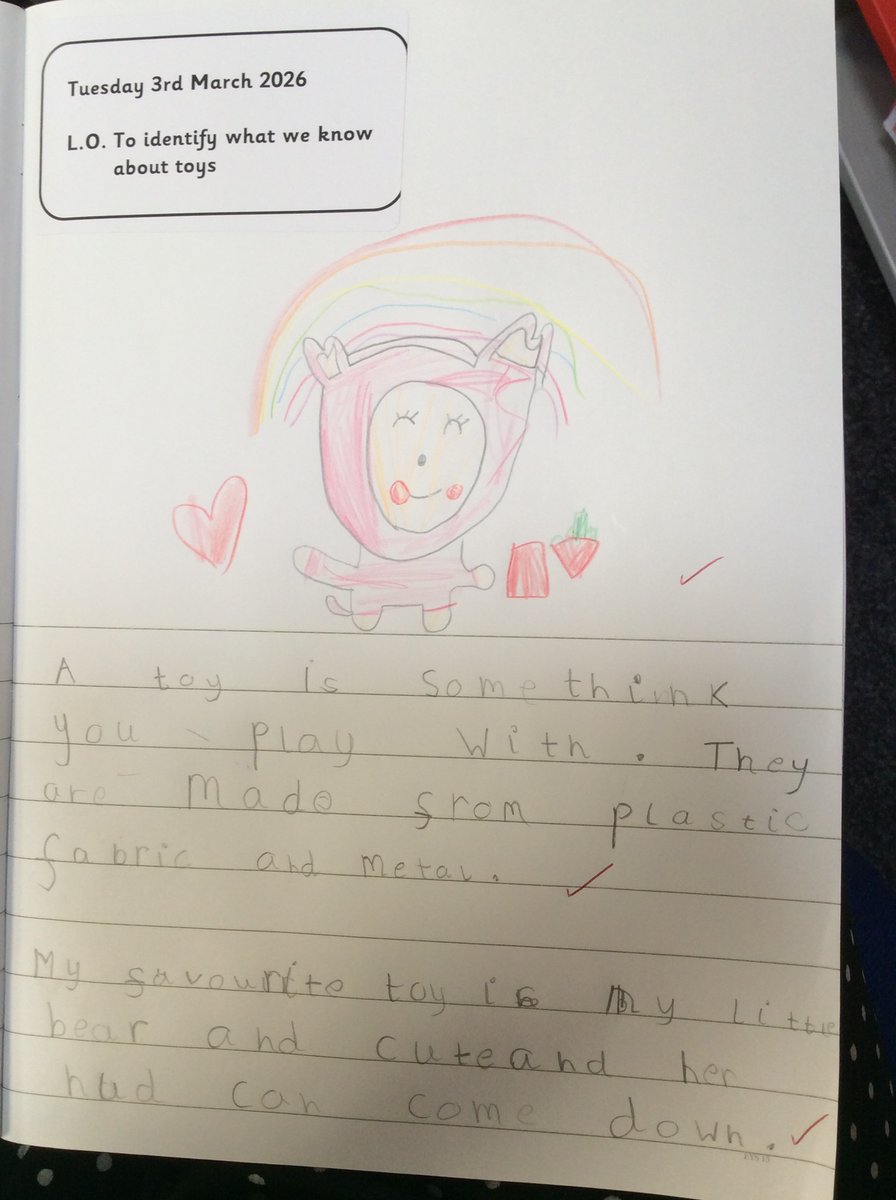 Tuesday 3rd March 2026
L.O. To identify what we know
about toys
A toy is somethink
you play with. They
are made from plastic
fabric and metal.
My favourite toy is my little
bear and cute and her
hud can come down.